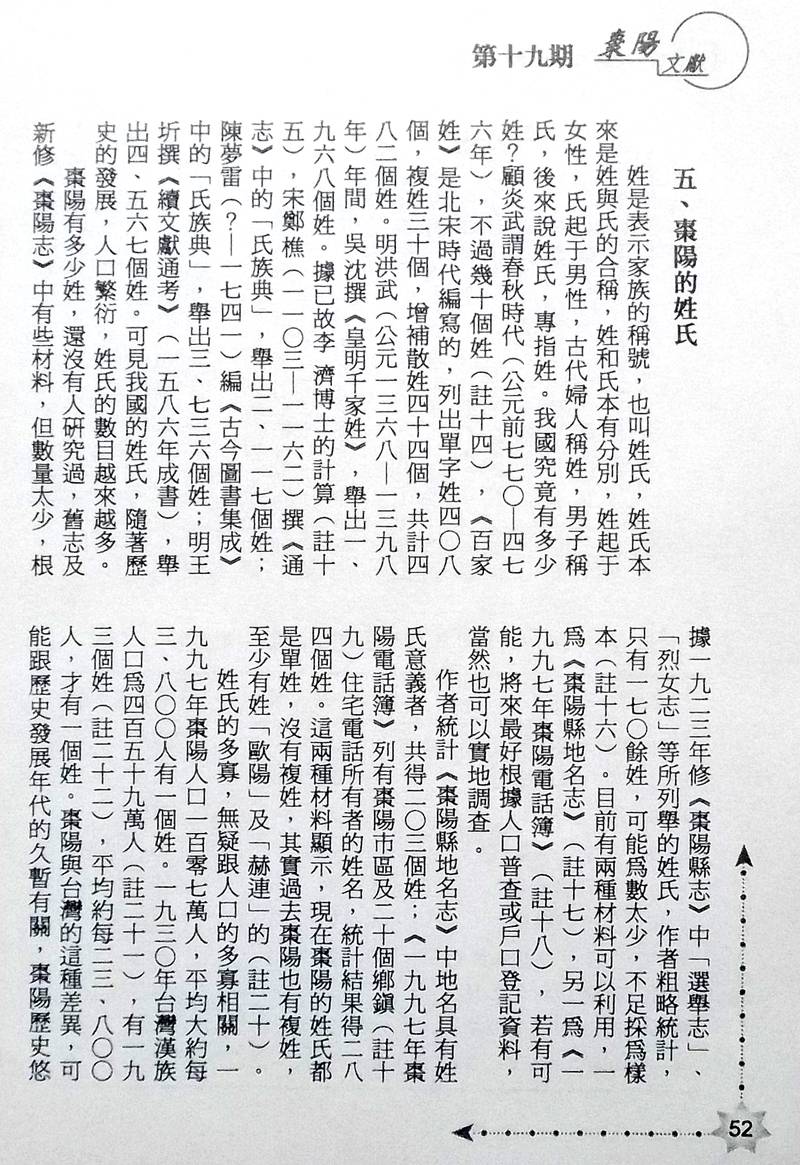 第十九期
棗陽
文獻
五、棗陽的姓氏
姓是表示家族的稱號，也叫姓氏，姓氏本
來是姓與氏的合稱，姓和氏本有分別，姓起于
女性，氏起于男性，古代婦人稱姓，男子稱
氏，後來說姓氏，專指姓。我國究竟有多少
姓？顧炎武謂春秋時代（公元前七七〇—四七
六年），不過幾十個姓（註十四），《百家
姓》是北宋時代編寫的，列出單字姓四〇八
個，複姓三十個，增補散姓四十四個，共計四
八二個姓。明洪武（公元一三六八—一三九八
年）年間，吳沈撰《皇明千家姓》，舉出一、
九六八個姓。據已故李 濟博士的計算（註十
五），宋鄭樵（一一〇三—一一六二）撰《通
志》中的「氏族典」，舉出二、一一七個姓；
陳夢雷（？—一七四一）編《古今圖書集成》
中的「氏族典」，舉出三、七三六個姓；明王
圻撰《續文獻通考》（一五八六年成書），舉
出四、五六七個姓。可見我國的姓氏，隨著歷
史的發展，人口繁衍，姓氏的數目越來越多。
棗陽有多少姓，還沒有人研究過，舊志及
新修《棗陽志》中有些材料，但數量太少，根
據一九二三年修《棗陽縣志》中「選舉志」、
「烈女志」等所列舉的姓氏，作者粗略統計，
只有一七〇餘姓，可能爲數太少，不足採爲樣
本（註十六）。目前有兩種材料可以利用，一
爲《棗陽縣地名志》（註十七），另一爲《一
九九七年棗陽電話簿》（註十八），若有可
能，將來最好根據人口普查或戶口登記資料，
當然也可以實地調查。
作者統計《棗陽縣地名志》中地名具有姓
氏意義者，共得二〇三個姓；《一九九七年棗
陽電話簿》列有棗陽市區及二十個鄉鎮（註十
九）住宅電話所有者的姓名，統計結果得二八
四個姓。這兩種材料顯示，現在棗陽的姓氏都
是單姓，沒有複姓，其實過去棗陽也有複姓，
至少有姓「歐陽」及「赫連」的（註二十）。
姓氏的多寡，無疑跟人口的多寡相關，一
九九七年棗陽人口一百零七萬人，平均大約每
三、八〇〇人有一個姓。一九三〇年台灣漢族
人口爲四百五十九萬人（註二十一），有一九
三個姓（註二十二），平均約每二三、八〇〇
人，才有一個姓。棗陽與台灣的這種差異，可
能跟歷史發展年代的久暫有關，棗陽歷史悠
52